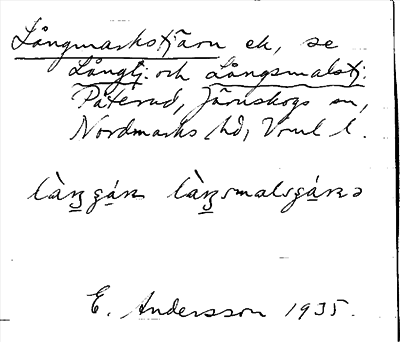 Långmarkstjärn ek, se
Långtj. och Långsmalstj.
Påterud, Järnskogs sn,
Nordmarks hd, Vrml l.
E. Andersson 1935.